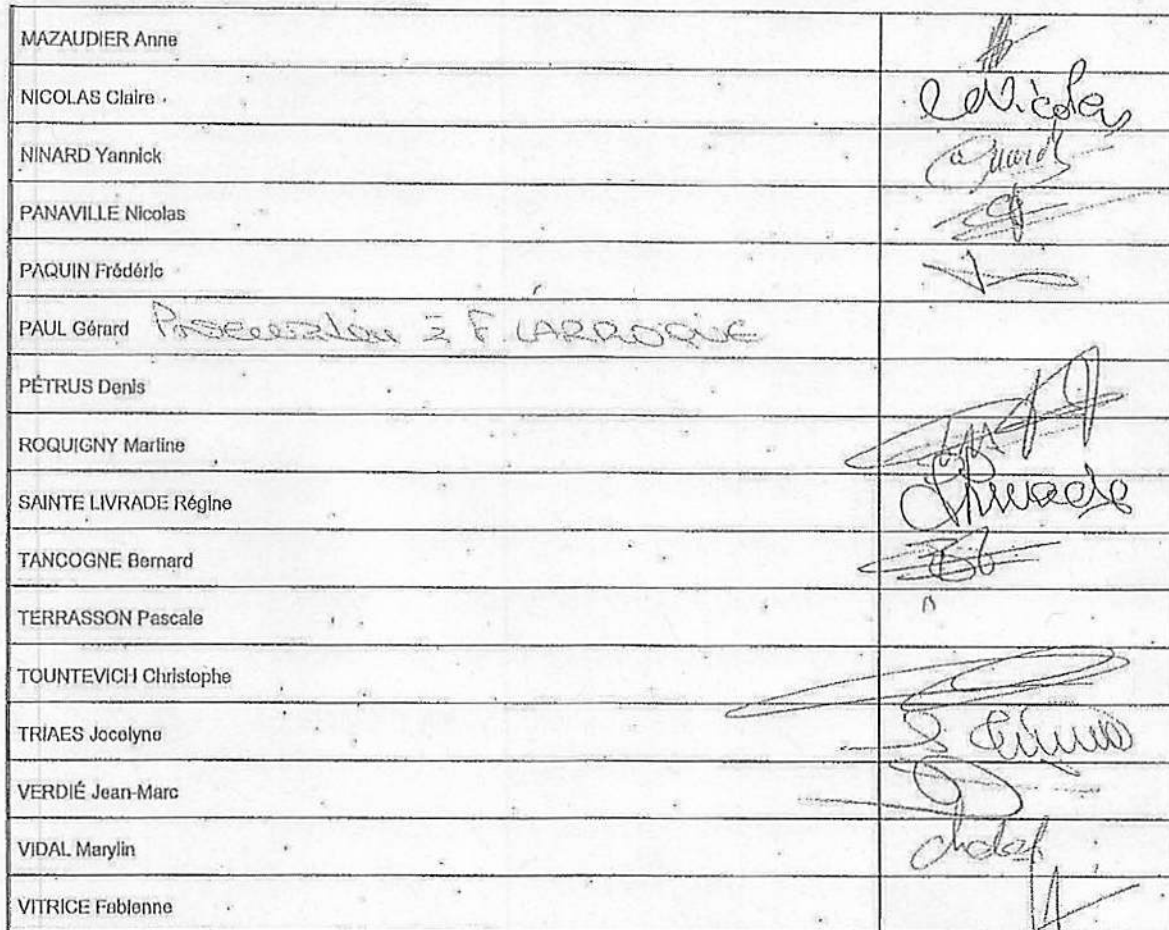 MAZAUDIER Anne
NICOLAS Claire
NINARD Yannick
PANAVILLE Nicolas
PAQUIN Frédéric
PAUL Gérard Procuration à F. LARROQUE
PÉTRUS Denis
ROQUIGNY Martine
SAINTE LIVRADE Régine
TANCOGNE Bernard
TERRASSON Pascale
TOUNTEVICH Christophe
TRIAES Jocelyne
VERDIÉ Jean-Marc
VIDAL Marylin
VITRICE Fabienne